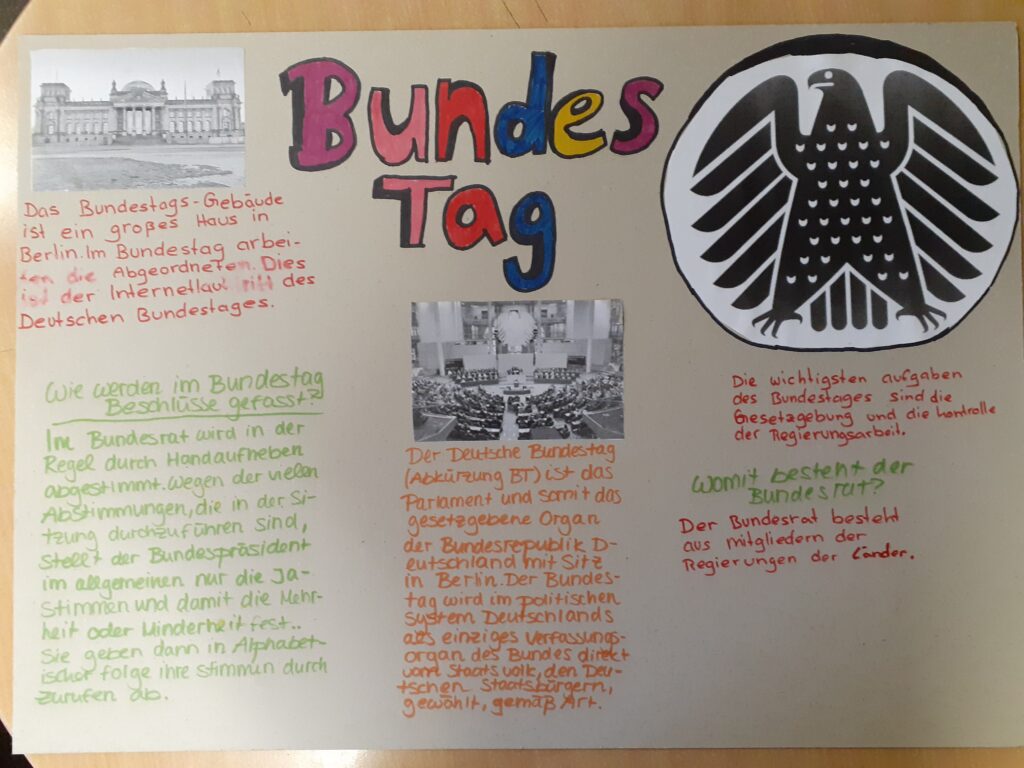 Bundes
Tag
Das Bundestags-Gebäude
ist ein großes Haus in
Berlin. Im Bundestag arbei-
ten die Abgeordneten. Dies
ist der Internetlauftritt des
Deutschen Bundestages.
Wie werden im Bundestag
Beschlüsse gefasst?
Im Bundesrat wird in der
Regel durch Handaufheben
abgestimmt. Wegen der vielen
Abstimmungen, die in der Si-
tzung durchzuführen sind,
stellt der Bundespräsident
im allgemeinen nur die Ja-
Stimmen und damit die Mehr-
heit oder Minderheit fest..
Sie geben dann in Alphabet-
ischer folge ihre stimmun durch
zurufen ab.
Der Deutsche Bundestag
(Abkürzung BT) ist das
Parlament und somit das
gesetzgebene Organ
der Bundesrepublik D-
eutschland mit Sitz
in Berlin. Der Bundes-
tag wird im politischen
System Deutschlands
als einziges Verfassungs-
organ des Bundes direkt
vom Staatsvolk, den Deu-
tschen Staatsbürgern,
gewählt, gemäß Art.
Die wichtigsten aufgaben
des Bundestages sind die
Gesetzgebung und die kontrolle
der Regierungsarbeit.
Womit besteht der
Bundesrat?
Der Bundesrat besteht
aus mitgliedern der
Regierungen der Länder.